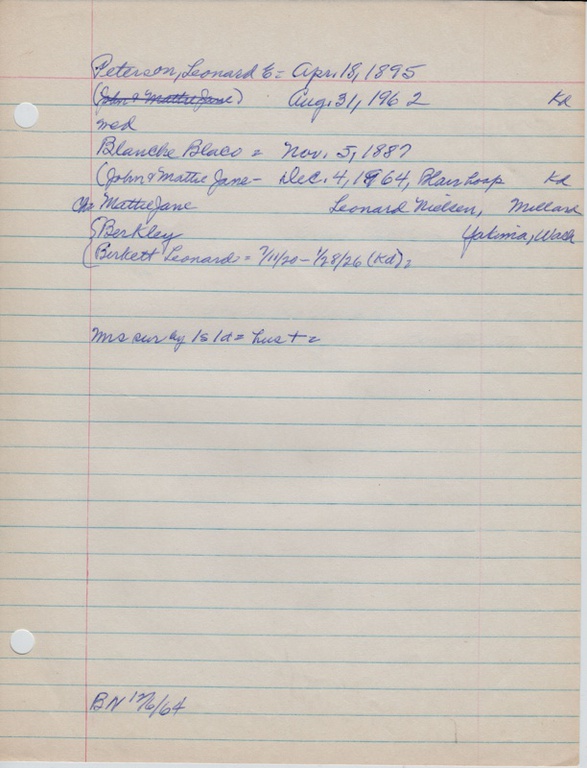 Peterson, Leonard E = Apr. 18, 1895
(John & Mattie Jane) Aug. 31, 1962 Kd
med
Blanche Blaco = Nov. 5, 1887
(John & Mattie Jane - Dec. 4, 1964, Blair hosp Kd
Ch = Mattie Jane Leonard Nielsen, Millard
Berkley Yakima, Wash
Birkett Leonard = 7/11/20 - 1/28/26 (Kd) =
Mrs sur by 1s 1d = hus + =
BN 12/6/64